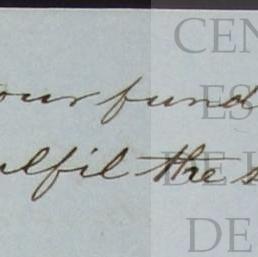 our fund
ulfil the s
CEN
ES
DE
DE